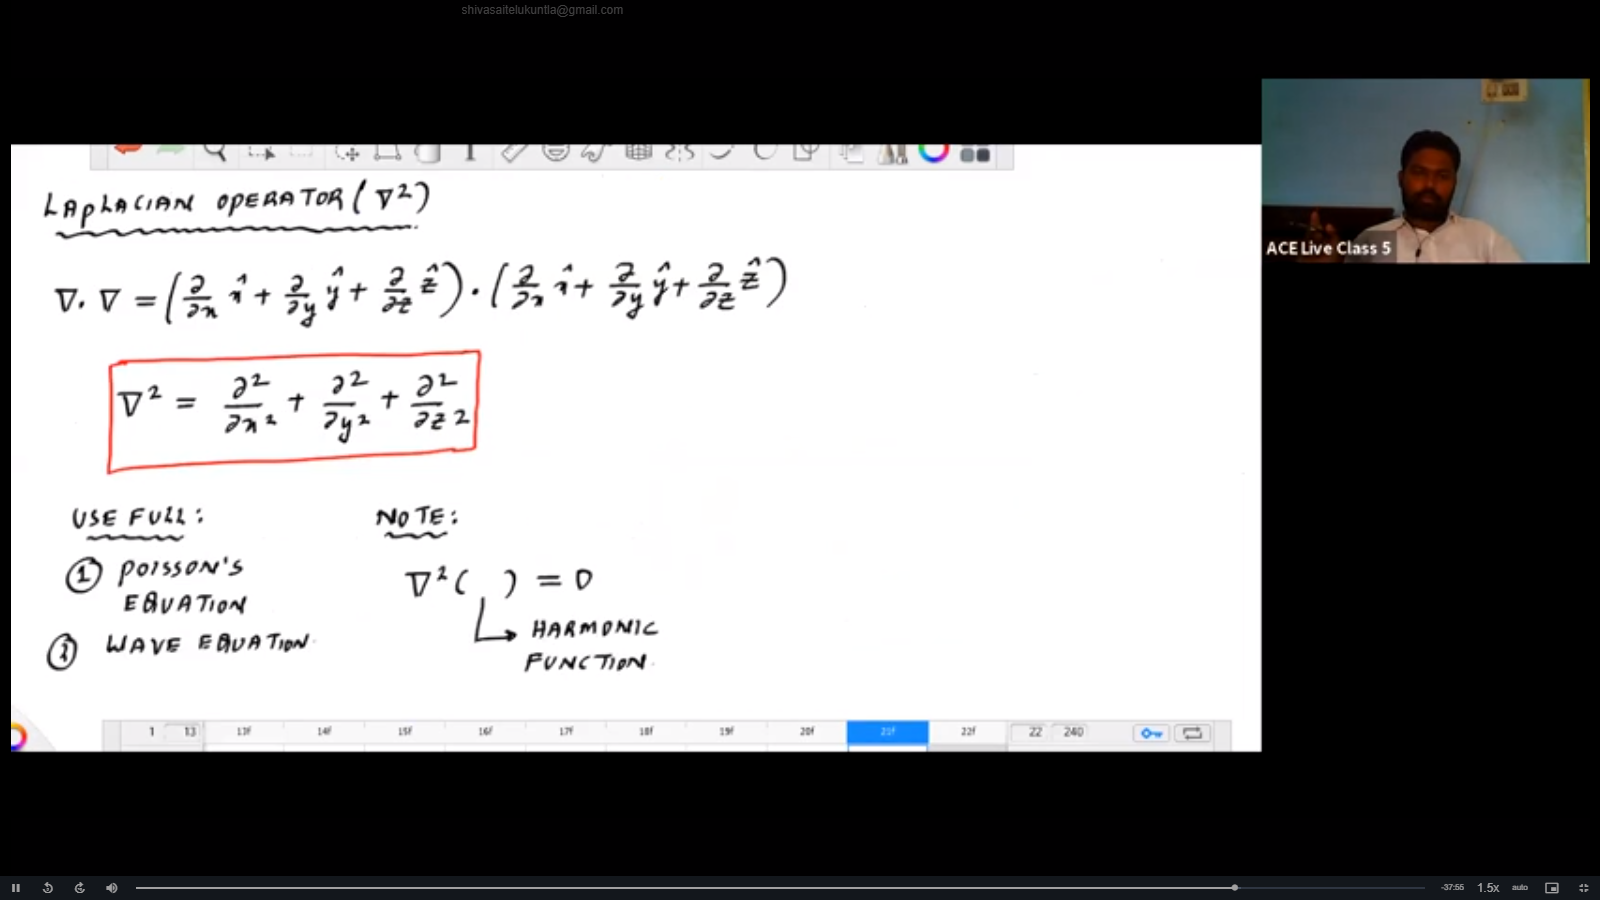 shivasaitelukuntla@gmail.com
LAPLACIAN OPERATOR (∇²)
∇·∇ = (∂/∂x x̂ + ∂/∂y ŷ + ∂/∂z ẑ) · (∂/∂x x̂ + ∂/∂y ŷ + ∂/∂z ẑ)
∇² = ∂²/∂x² + ∂²/∂y² + ∂²/∂z²
USE FULL:
① POISSON'S
EQUATION
② WAVE EQUATION
NOTE:
∇²( ) = 0
HARMONIC
FUNCTION
ACE Live Class 5
1 13 13f 14f 15f 16f 17f 18f 19f 20f 21f 22f 22 240
-37:55 1.5x auto